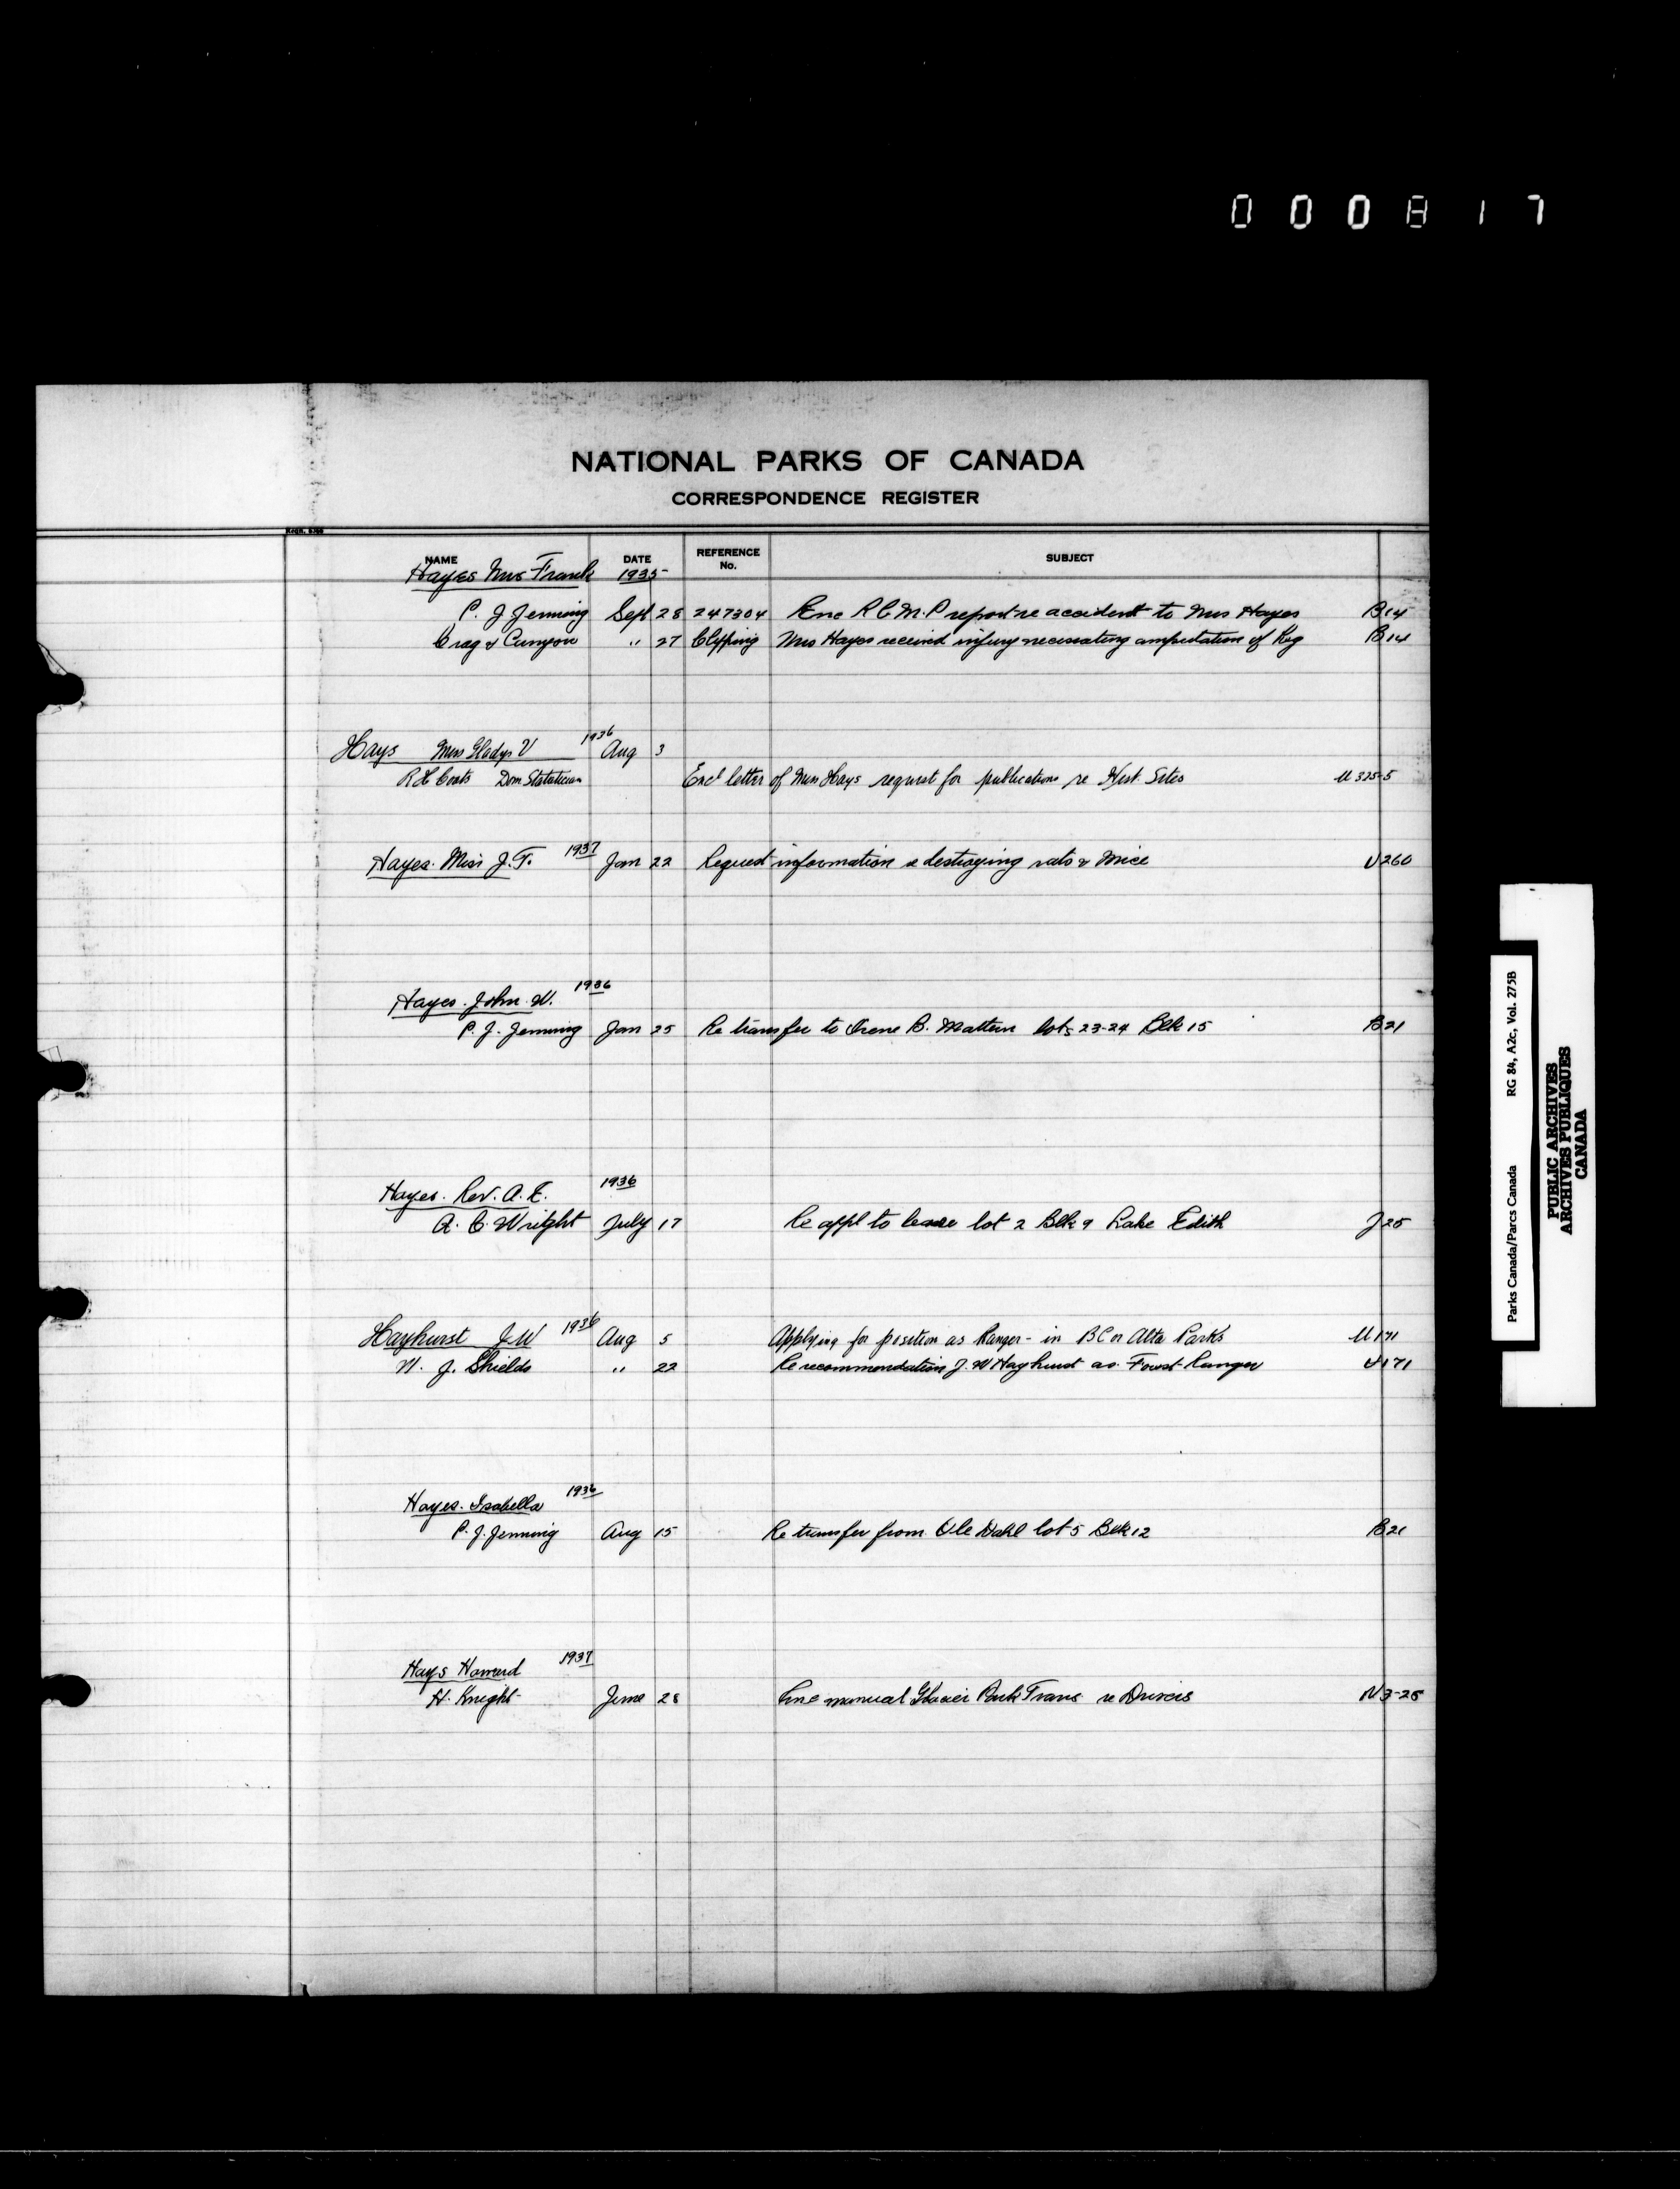 000817
NATIONAL PARKS OF CANADA
CORRESPONDENCE REGISTER
NAME DATE REFERENCE No. SUBJECT
Hayes Mrs Frank 1935
P. J Jenning Sept 28 247304 Enc R C M. P report re accident to Mrs Hayes B14
Crag & Canyon " 27 Clipping Mrs Hayes received injury necessating amputation of leg B14
Hays Miss Gladys V 1936 Aug 3
R H Coats Dom Statistician Encl letter of Miss Hays request for publications re Hist. Sites U 325-5
Hayes. Miss J. T. 1937 Jan 22 Request information re destroying rats & mice U260
Hayes. John. W. 1936
P. J. Jenning Jan 25 Re transfer to Irene B. Mattern lots 23-24 Blk 15 B21
Hayes. Rev. A. E. 1936
A. C. Wright July 17 Re appl to lease lot 2 Blk 9 Lake Edith J25
Hayhurst J. W 1936 Aug 5 Applying for position as Ranger - in BC or Alta Parks U171
N. J. Shields " 22 Re recommendation J. W Hayhurst as Forest Ranger U171
Hayes. Isabella 1936
P. J. Jenning Aug 15 Re transfer from Ole Dahl lot 5 Blk 12 B21
Hays Howard 1937
H. Knight June 28 Enc manual Glacier Park Trans re Drivers
Parks Canada/Parcs Canada RG 84, A2c, Vol. 275B
PUBLIC ARCHIVES
ARCHIVES PUBLIQUES
CANADA